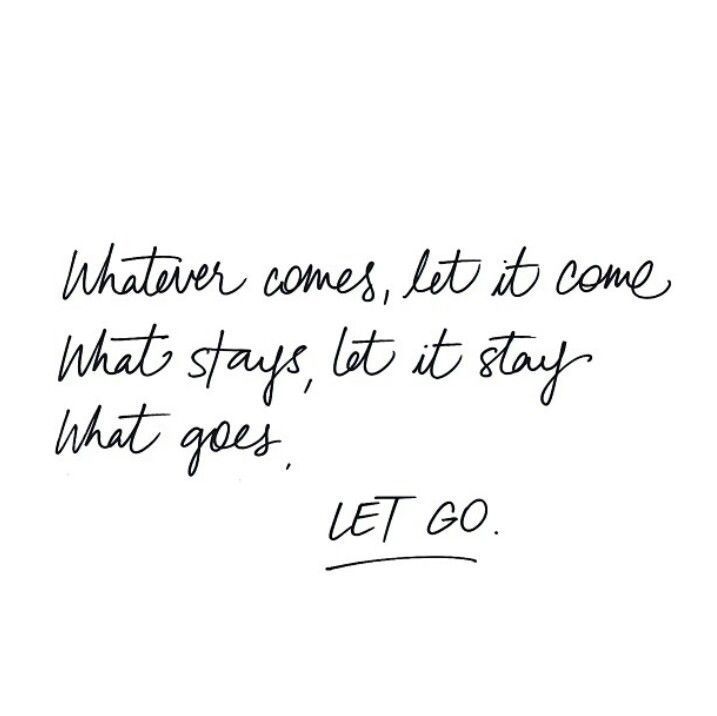 Whatever comes, let it come
What stays, let it stay
What goes,
LET GO.